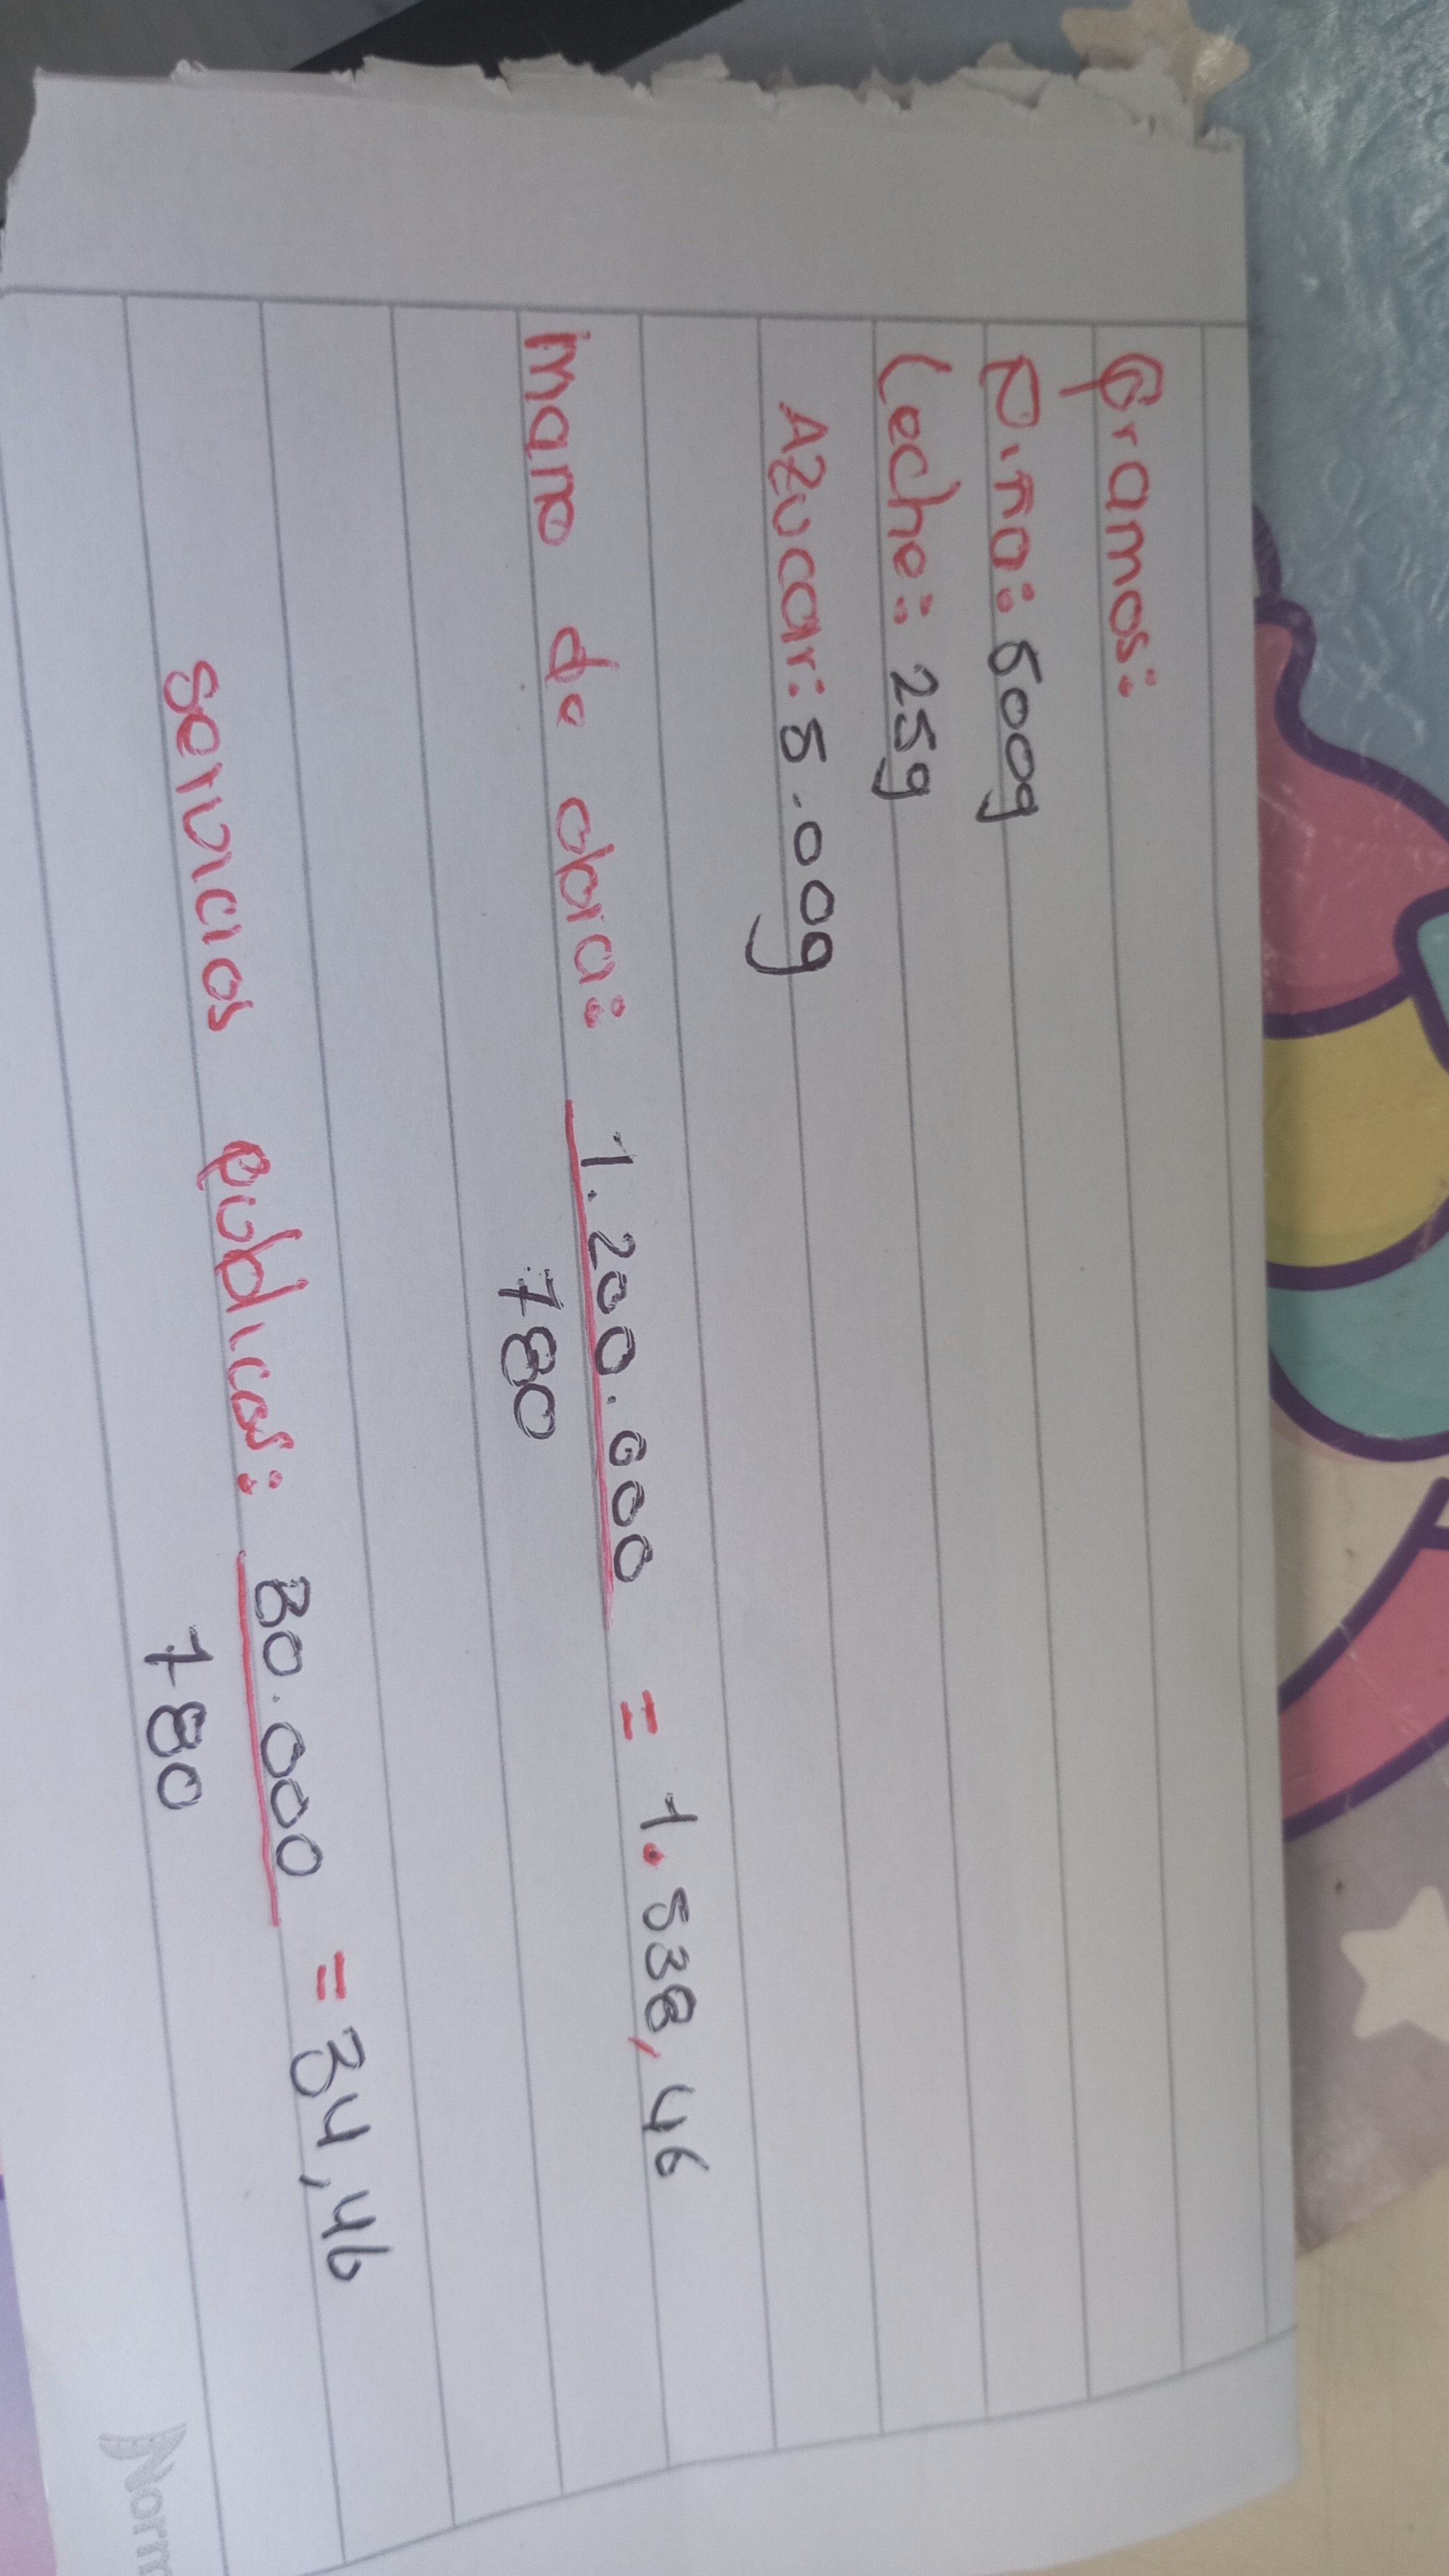 Gramos:
Piña: 500g
Leche: 25g
Azucar: 5.00g
mano de obra: 1.200.000 = 1.538,46
780
servicios publicos: 30.000 = 34,46
780
Norm